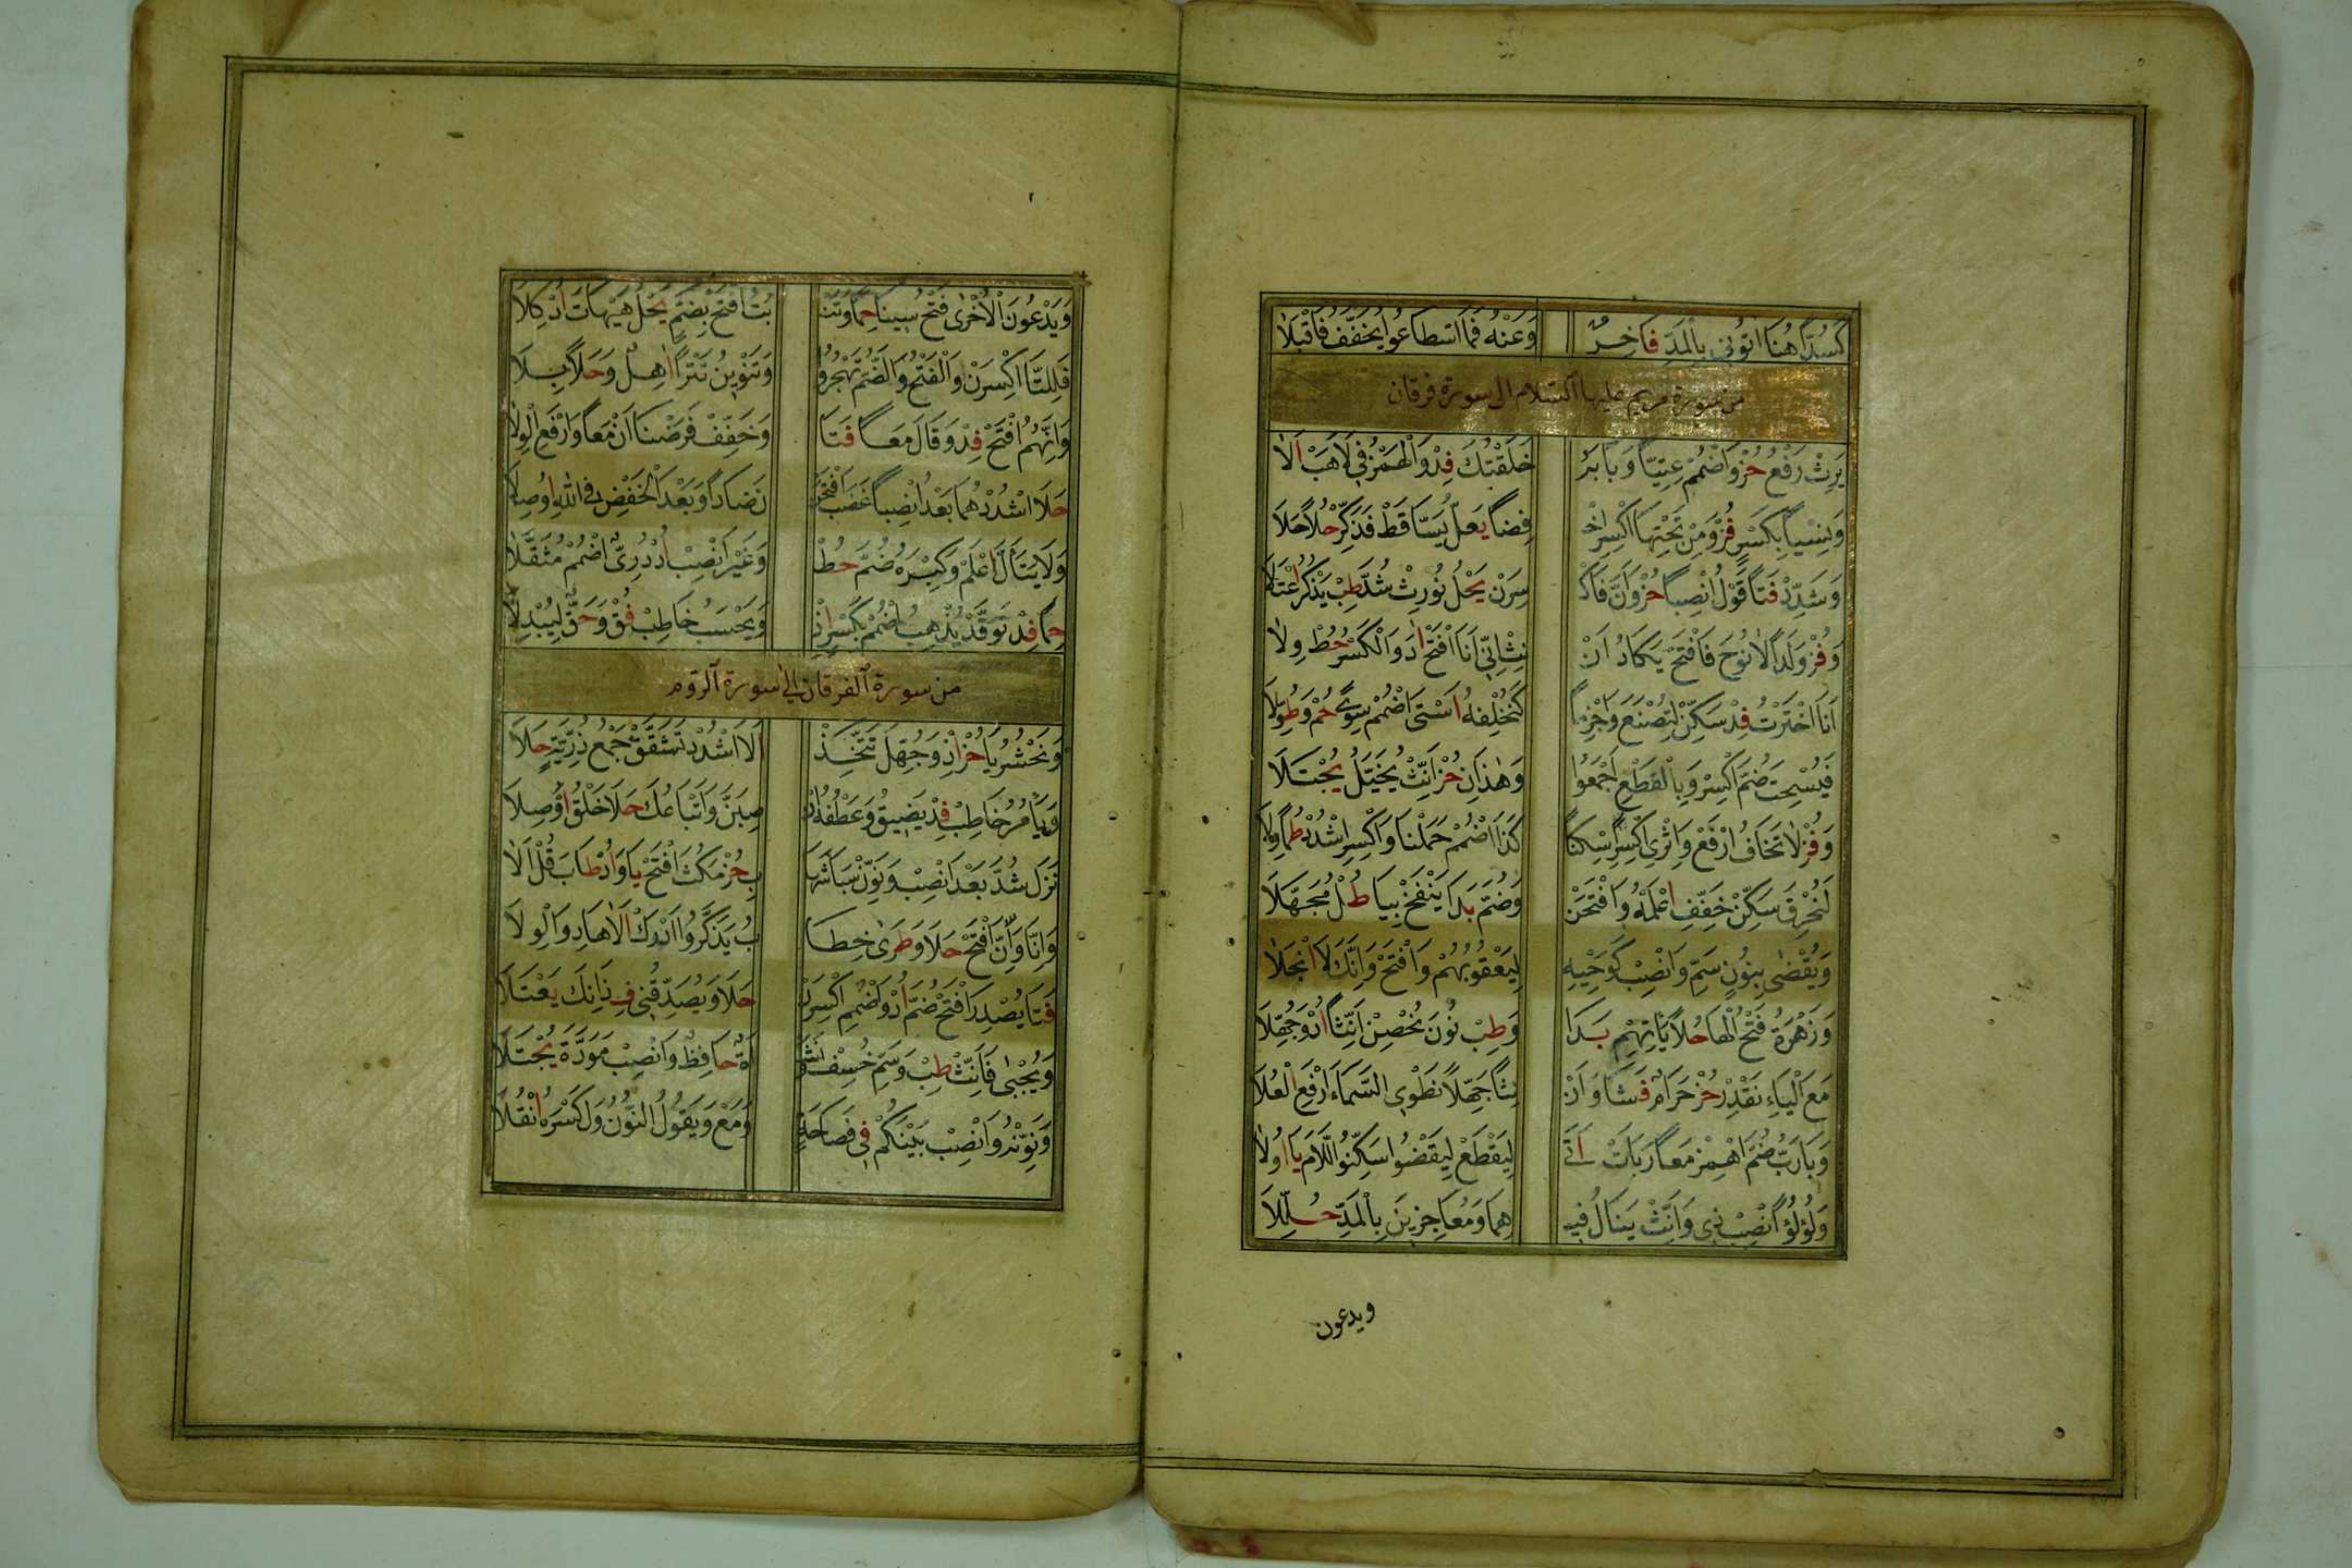 كَسُدًّا هُنَا اٰتُونِي بِالْمَدِّ فَاخِرٌ وَعَنْهُ فَمَا اسْطَاعُوا يُخَفِّفُ فَاقْبَلَا
من سورة مريم عليها السلام الى سورة فرقان
يَرِثْ رَفْعُ حُزْ وَاضْمُمْ عِتِيًّا وَبَابَهُ خَلَقْتُكَ فِدْ وَالْهَمْزُ فِي لَاهَبْ اَلَا
وَنِسْيًا بِكَسْرٍ فُزْ وَمِنْ تَحْتِهَا اكْسِرِ اخْ فِضًا يَعْلُ يَسَّاقَطْ فَذَكِّرْ حُلًا حَلَا
وَشَدِّدْ فَتًا قَوْلُ انْصِبًا حُزْ وَاَنَّ فَاكْ سِرَنْ يَحْلُ نُورِثْ شُدَّ طِبْ يَذْكُرُ اعْتَلَا
وَفُزْ وَلَدًا لَا نُوحَ فَافْتَحْ يَكَادُ اَنْ نِثِ اِنِّي اَنَا افْتَحْ اٰدَ وَالْكَسْرُ حُطْ وِلَا
اَنَا اخْتَرْتُ فِدْ سَكِّنْ لِتُصْنَعَ وَاجْزِمًا كَنُخْلِفْهُ اَسْنَى اضْمُمْ سِوًى حُمْ وَطُولَا
فَيُسْحِتَ ضُمَّ اكْسِرْ وَبِالْقَطْعِ اَجْمِعُوا وَهٰذَانِ حُزْ اَنِّثْ يُخَيَّلُ يُجْتَلَا
وَفُزْ لَا تَخَافُ ارْفَعْ وَاِثْرِي اكْسِرِ اسْكِنًا كَذَا اضْمُمْ حَمَلْنَا وَاكْسِرِ اشْدُدْ طُمًا وِلَا
لَنُحْرِقَ سَكِّنْ خَفِّفِ اعْلَمْهُ وَافْتَحَنْ وَضُمَّ بَدَا يَنْفَخْ بِيَا طُلْ مُجَهَّلَا
وَيُقْضٰى بِنُونٍ سَمِّ وَانْصِبْ كَوَحْيِهِ لِيَعْقُوبِهُمْ وَافْتَحْ وَاِنَّكَ لَا انْجَلَا
وَزَهْرَةُ فَتْحُ الْهَا حُلًا يَاتِهِمْ بَدَا وَطِبْ نُونَ نُحْصِنْ اَنِّثًا اُدْ وَجُهِّلَا
مَعَ الْيَاءِ نَقْدِرْ حُزْ حَرَامٌ فَشَا وَاَنْ نِثًا جَهِّلًا نَطْوِي السَّمَاءَ ارْفَعِ الْعُلَا
وَبَا رَبُّ ضُمَّ اهْمِزْ مَعًا رَبَاَتْ اَتَى لِيَقْطَعْ لِيَقْضُوا سَكِّنُوا اللَّامَ يَا اُولَا
وَلُؤْلُؤًا انْصِبْ ذِي وَاَنِّثْ يَنَالُ فِيهِ هِمَا وَمُعَاجِزِينَ بِالْمَدِّ حُلِّلَا
ويدعون
وَيَدْعُونَ الْاُخْرٰى فَتْحُ سِينَا حِمًا وَتَنْ بُتُ افْتَحْ بِضَمٍّ يَحْلُ هَيْهَاتَ اُدْ كِلَا
فَلِلتَّا اكْسِرَنْ وَالْفَتْحُ وَالضَّمُّ تُهْجِرُو وَتَنْوِينُ تَتْرًا اٰهِلٌ وَحَلًا بِلَا
وَاِنَّهُمُ افْتَحْ فِدْ وَقَالَ مَعًا فَتًا وَخَفِّفْ فَرَضْنَا اَنْ مَعًا وَارْفَعِ الْوِلَا
حَلَا اشْدُدْهُمَا بَعْدُ انْصِبًا غَضَبَ افْتَحَنْ نَضَادًا وَبَعْدَ الْخَفْضِ فِي اللّٰهِ اُوصِلَا
وَلَا يَتَاَلَّ اعْلَمْ وَكِبْرَهُ ضُمَّ حُطْ وَغَيْرُ انْصِبْ اُدْ دُرِّيٌّ اضْمُمْ مُثَقَّلَا
حِمًا فِدْ تَوَقَّدْ يُذْهِبُ اضْمُمْ بِكَسْرٍ اُدْ وَيَحْسَبُ خَاطِبْ فُقْ وَحَقٌّ لِيُبْدِلَا
من سورة الفرقان الى سورة الروم
وَنَحْشُرُ يَا حُزْ اِذْ وَجُهِّلَ نَتَّخِذْ اَلَا اشْدُدْ تَشَقَّقْ جَمْعُ ذُرِّيَّةٍ حَلَا
وَيَاْمُرُ خَاطِبْ فِدْ يَضِيقُ وَعَطْفُهُ انْ صِبَنَّ وَاَتْبَاعُكَ حَلَا خَلْقُ اُوصِلَا
نَزَلْ شُدَّ بَعْدُ انْصِبْ وَنَوِّنْ سَبَا شِهَا بِ حُزْ مَكُثَ افْتَحْ يَا وَاُدْ طَابَ قُلْ اَلَا
وَاِنَّا وَاِنَّ افْتَحْ حَلَا وَطَرٰى خِطَا بُ يَذَّكَّرُوا اَدْرَكْ اَلَا هَادِ وَالْوِلَا
فَتًا يُصْدِرَ افْتَحْ ضُمَّ اُدْ وَاضْمُمِ اكْسِرَنْ حَلَا وَيُصَدِّقْنِي فِدْ ذَانِكَ يَعْتَلَا
وَيُجْبٰى فَاَنِّثْ طِبْ وَسَمِّ خُسِفْ وَنَشْ اَةٌ حَافِظٌ وَانْصِبْ مَوَدَّةَ يُجْتَلَا
وَنَوِّنْهُ وَانْصِبْ بَيْنَكُمْ فِي فَصَاحَةٍ وَمَعْ وَيَقُولُ النُّونُ وَلْ كَسْرَهُ انْقُلَا